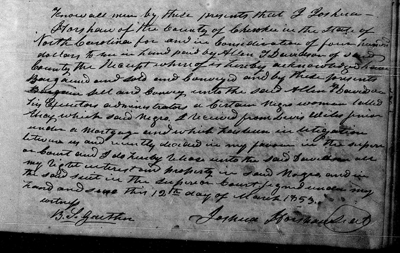 Know all men by these presents that I Joshua
Harshaw of the County of Cherokee in the State of
North Carolina for and in Consideration of four hundred
dollars to me in hand paid by Allen of said
County the Receipt whereof is hereby acknowledged have
Bargained and sold and Conveyed and by these presents
Bargain sell and Convey unto the said Allen Davidson
his Executors administrators a Certain Negro woman called
May, which said Negro I received from Lewis
under a Mortgage and which has been in litigation
between us and decided in my favour in the
Court and I do hereby release unto the said Davidson all
my right interest and property in said Negro and in
the said suit in the Superior Court signed under my
hand and this 12th day of March 1853.
witness
Joshua Harshaw Seal